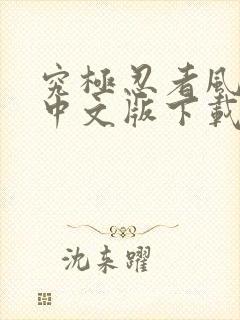 究極忍者風
中文版下載
沈夹躍